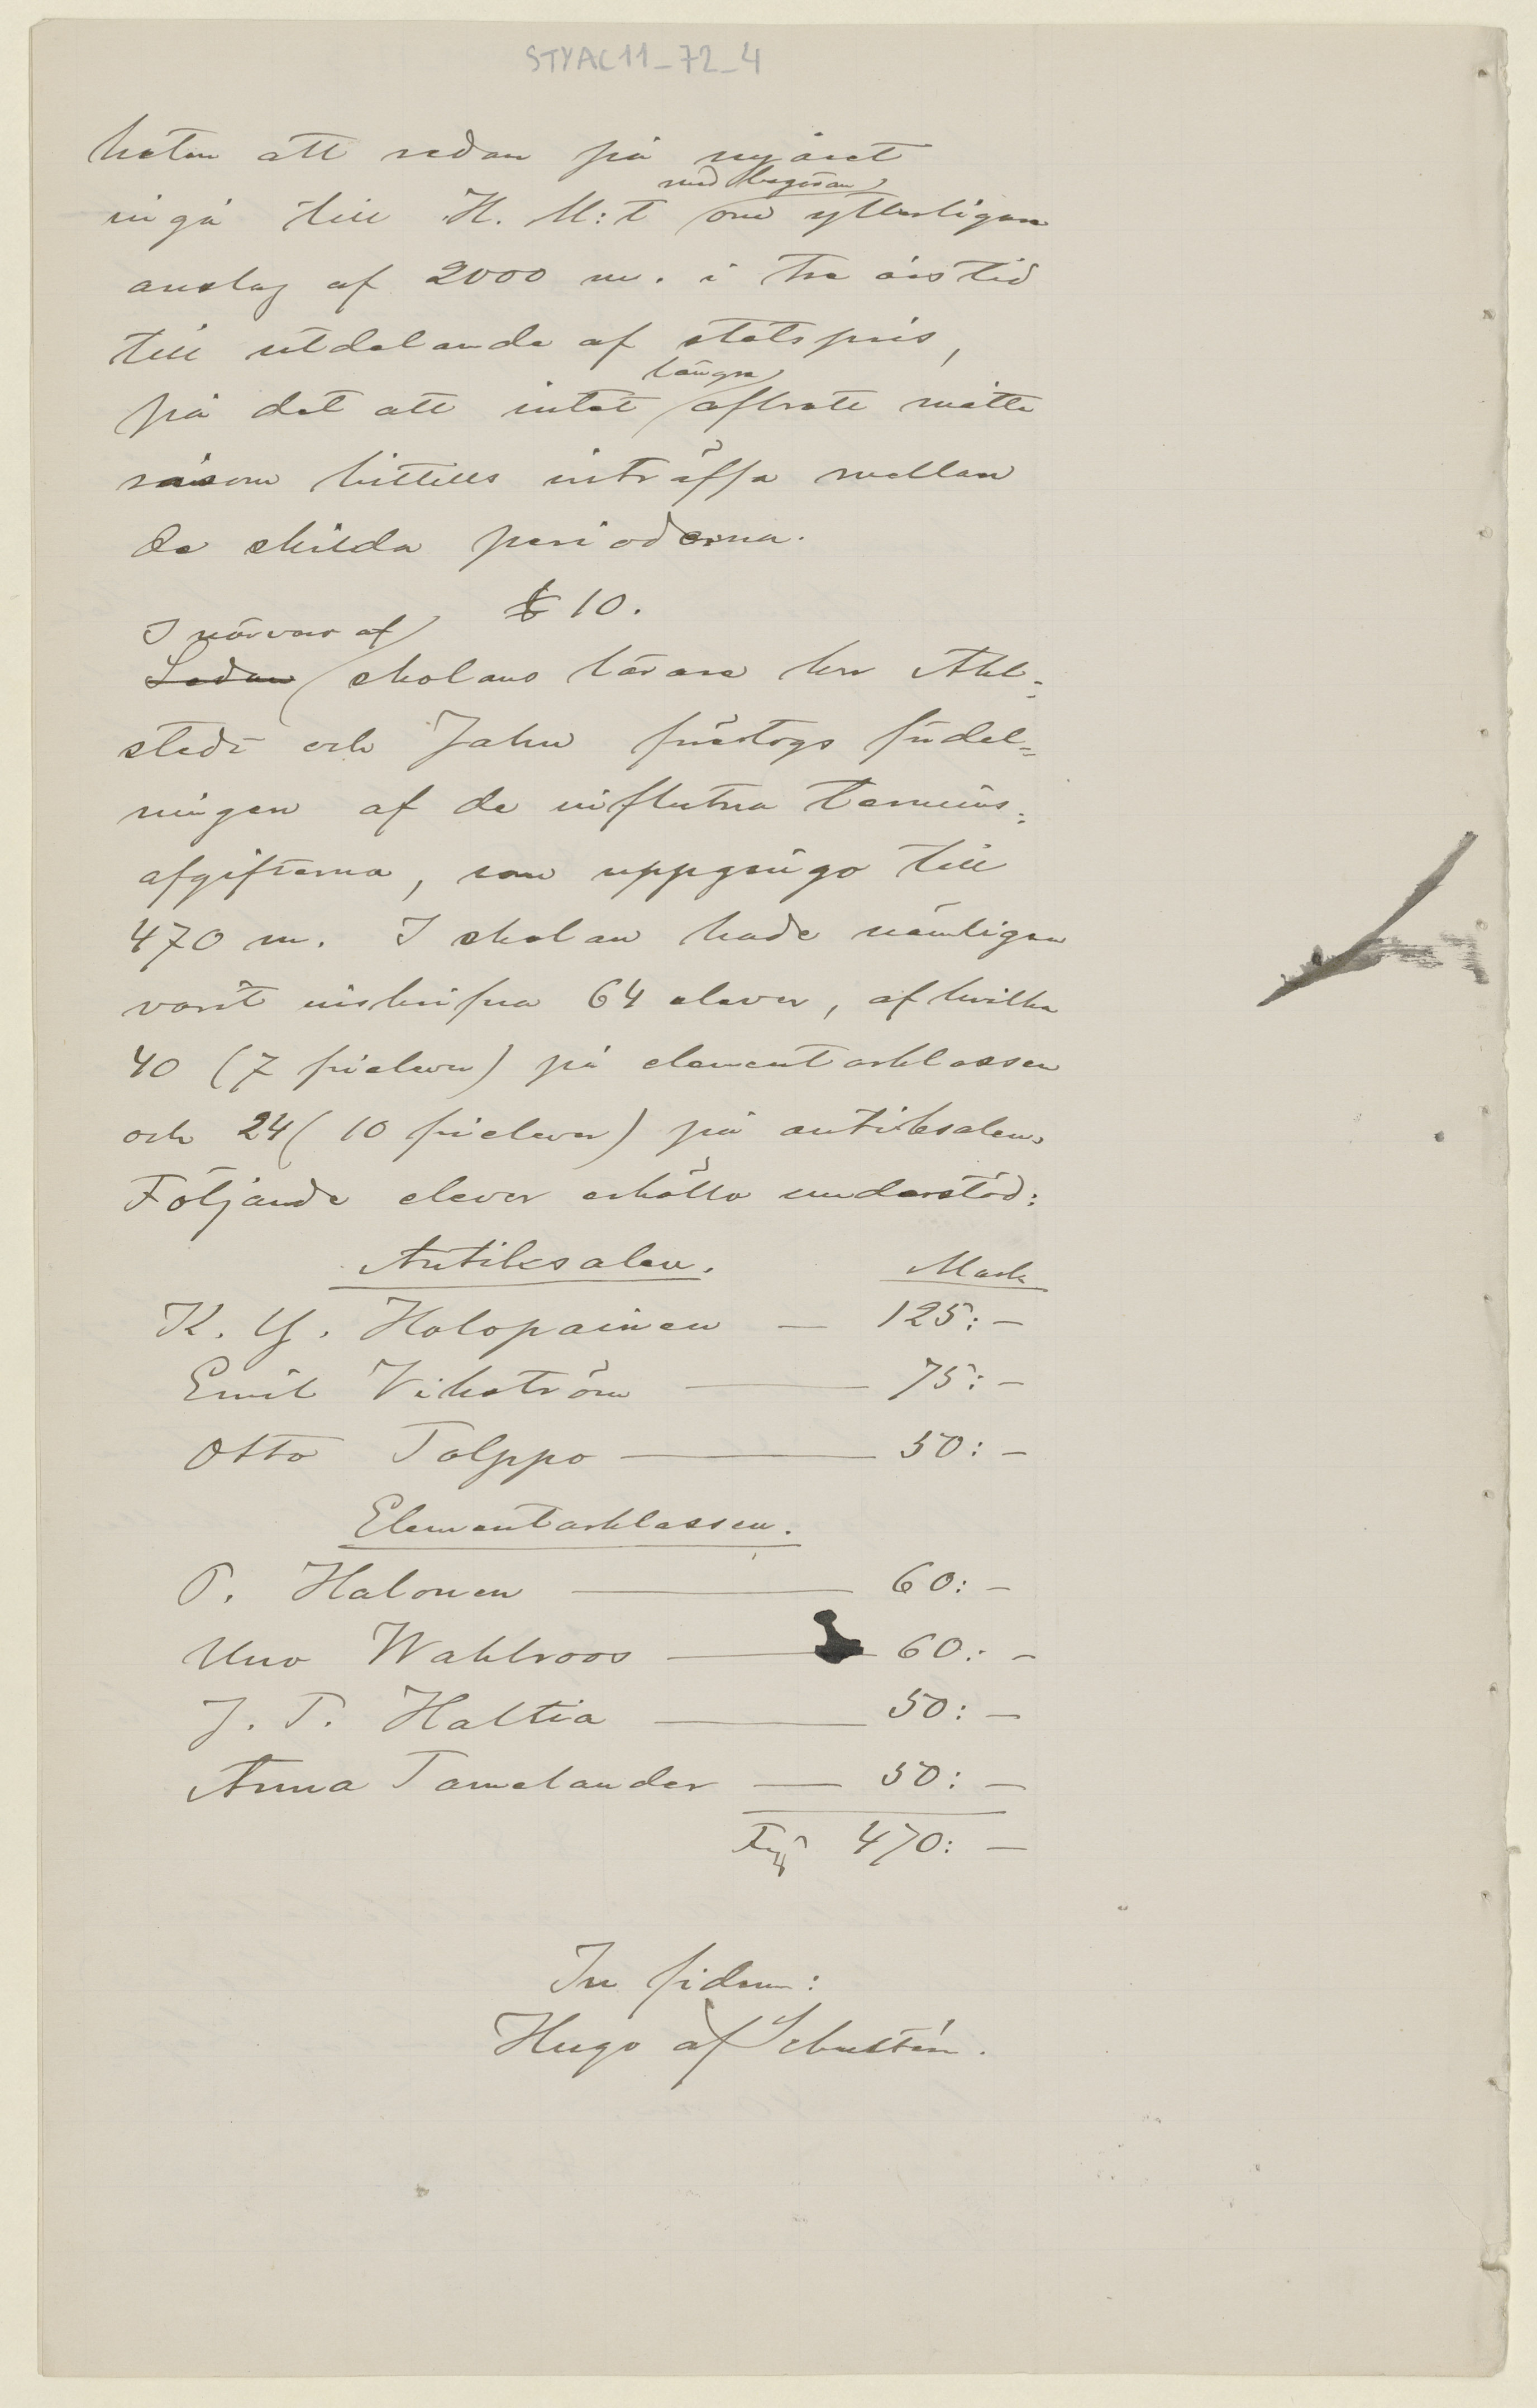 STYAC11_72_4
heten att redan på nyåret
med begäran
ingå till H. M:t om ytterligare
anslag af 2000 m. i tre års tid
till utdelande af statspris,
längre
på det att intet afbrott måtte
såsom hittills inträffa mellan
de skilda perioderna.
§ 10.
I närvaro af
Sedan skolans lärare hrr Ahl-
stedt och Jahn företogs fördel-
ningen af de influtna termins-
afgifterna, som uppgingo till
470 m. I skolan hade nämligen
varit inskrifna 64 elever, af hvilka
40 (7 frielever) på elementarklassen
och 24 (10 frielever) på antiksalen.
Följande elever erhöllo understöd:
Antiksalen. Mark
K. G. Holopainen — 125:—
Emil Vikström — 75:—
Otto Tolppo — 50:—
Elementarklassen.
P. Halonen — 60:—
Uno Wahlroos — 60:—
J. T. Haltia — 50:—
Anna Tamelander — 50:—
470:—
In fidem:
Hugo af Schultén.